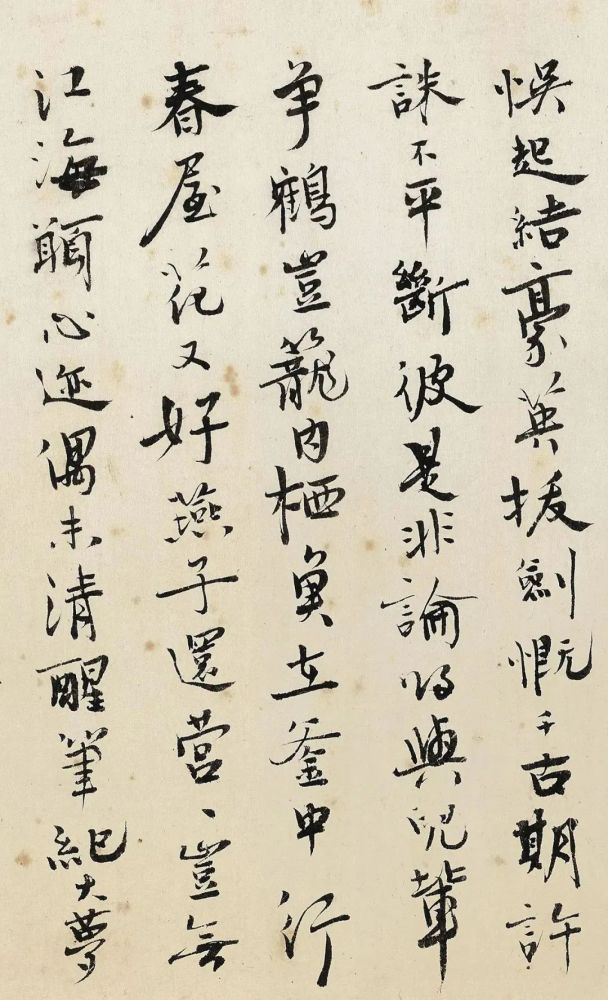 悞起結豪英拔劍慨千古期許
誅不平斷彼是非論的與兒輩
争鶴豈籠内栖魚在釜中行
春屋花又好燕子還营〻豈無
江海願心迹偶未清醒筆紀大夢